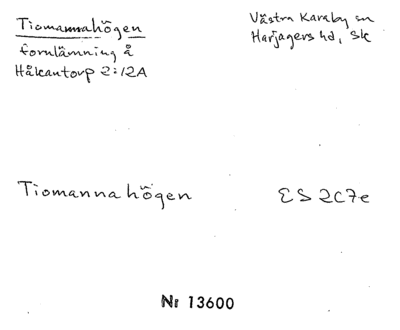 Tiomannahögen
fornlämning å
Håkantorp 2:12A
Västra Karaby sn
Harjagers hd, Sk
Tiomannahögen
ES 2C7e
Nr 13600